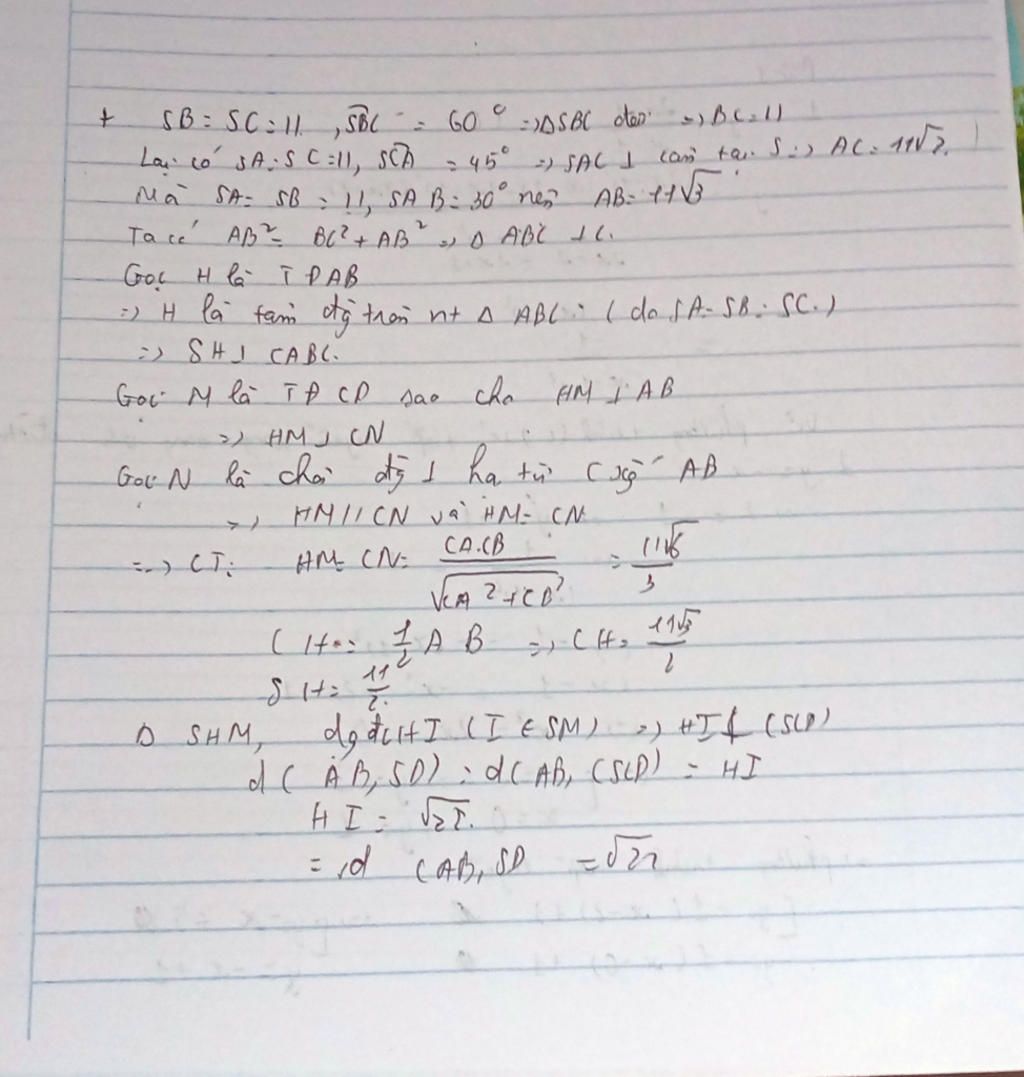 + SB = SC = 11, SBC = 60° => Δ SBC đều => BC = 11
Lại có SA = SC = 11, SCA = 45° => SAC ⊥ cân tại S => AC = 11√2.
Mà SA = SB = 11, SAB = 30° nên AB = 11√3
Ta có AB² = BC² + AB² => Δ ABC ⊥ C.
Gọi H là TĐ AB
=> H là tâm đg tròn nt Δ ABC : (do SA = SB = SC.)
=> SH ⊥ (ABC.
Gọi M là TĐ CD sao cho HM ⊥ AB
=> HM ⊥ CN
Gọi N là chân đg ⊥ hạ từ C xg AB
=> HM // CN và HM = CN
=> CT: HM = CN = CA.CB / √CA² + CB² = 11√6 / 3
CH = 1/2 AB => CH = 11√3 / 2
SH = 11/2.
Δ SHM, dg đc HI (I ∈ SM) => HI ⊥ (SCD)
d( AB, SD) = d(AB, (SCD) = HI
HI = √22.
=> d (AB, SD = √22